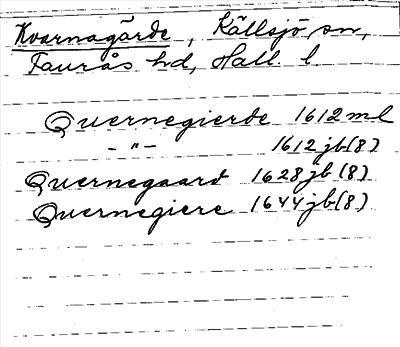 Kvarnagärde, Källsjö sn,
Faurås hd, Hall l
Quernegierde 1612 ml
- " - 1612 jb (8)
Quernegaard 1628 jb (8)
Quernegiere 1644 jb (8)